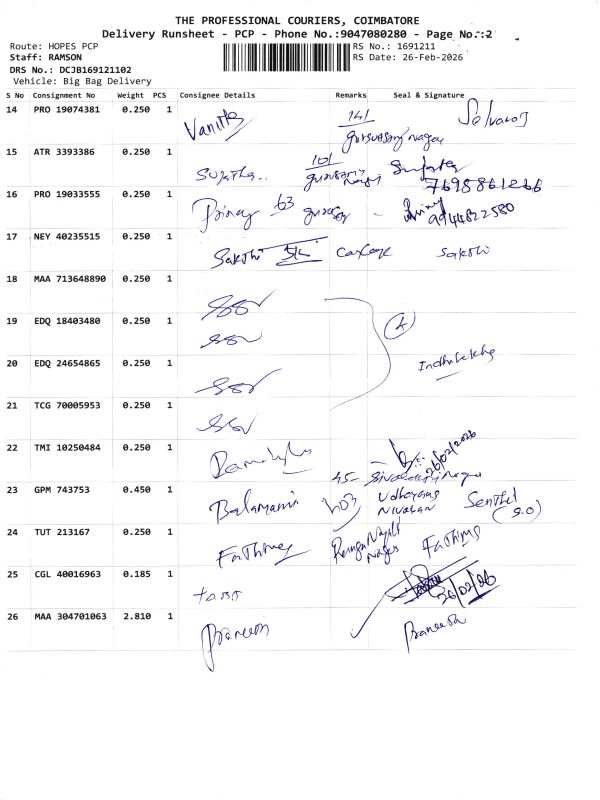 THE PROFESSIONAL COURIERS, COIMBATORE
Delivery Runsheet - PCP - Phone No.:9047080280 - Page No.:2
Route: HOPES PCP RS No.: 1691211
Staff: RAMSON RS Date: 26-Feb-2026
DRS No.: DCJB169121102
Vehicle: Big Bag Delivery
S No Consignment No Weight PCS Consignee Details Remarks Seal & Signature
14 PRO 19074381 0.250 1 Vanitha 141 Selvaraj
15 ATR 3393386 0.250 1 Sujatha 101 Sujatha
7695861266
16 PRO 19033555 0.250 1 63
9944822580
17 NEY 40235515 0.250 1 Sakthi Sakthi
18 MAA 713648890 0.250 1
19 EDQ 18403480 0.250 1 4
20 EDQ 24654865 0.250 1
21 TCG 70005953 0.250 1
22 TMI 10250484 0.250 1 26/02/2026
23 GPM 743753 0.450 1 Balamani 403 Senthil
(S.O)
24 TUT 213167 0.250 1 Fathima Fathima
25 CGL 40016963 0.185 1 26/02/26
26 MAA 304701063 2.810 1 Praneesh Praneesh